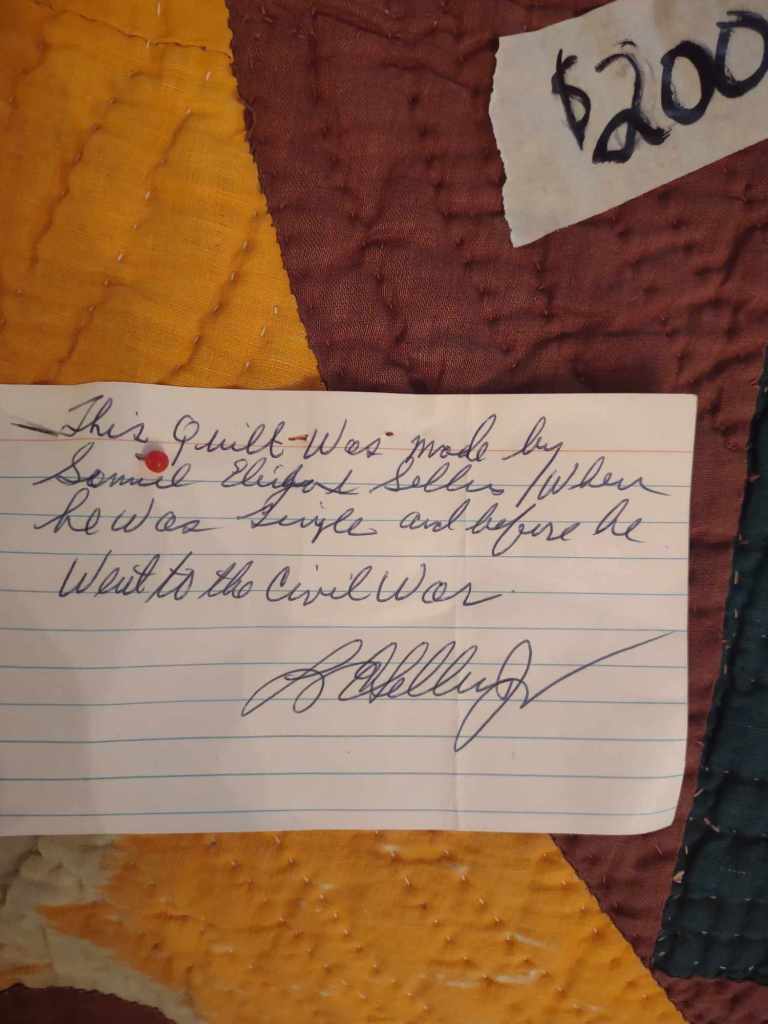 $200
This Quilt Was made by
Samuel Sellers / When
he was single and before he
Went to the Civil War.
Sellers Jr